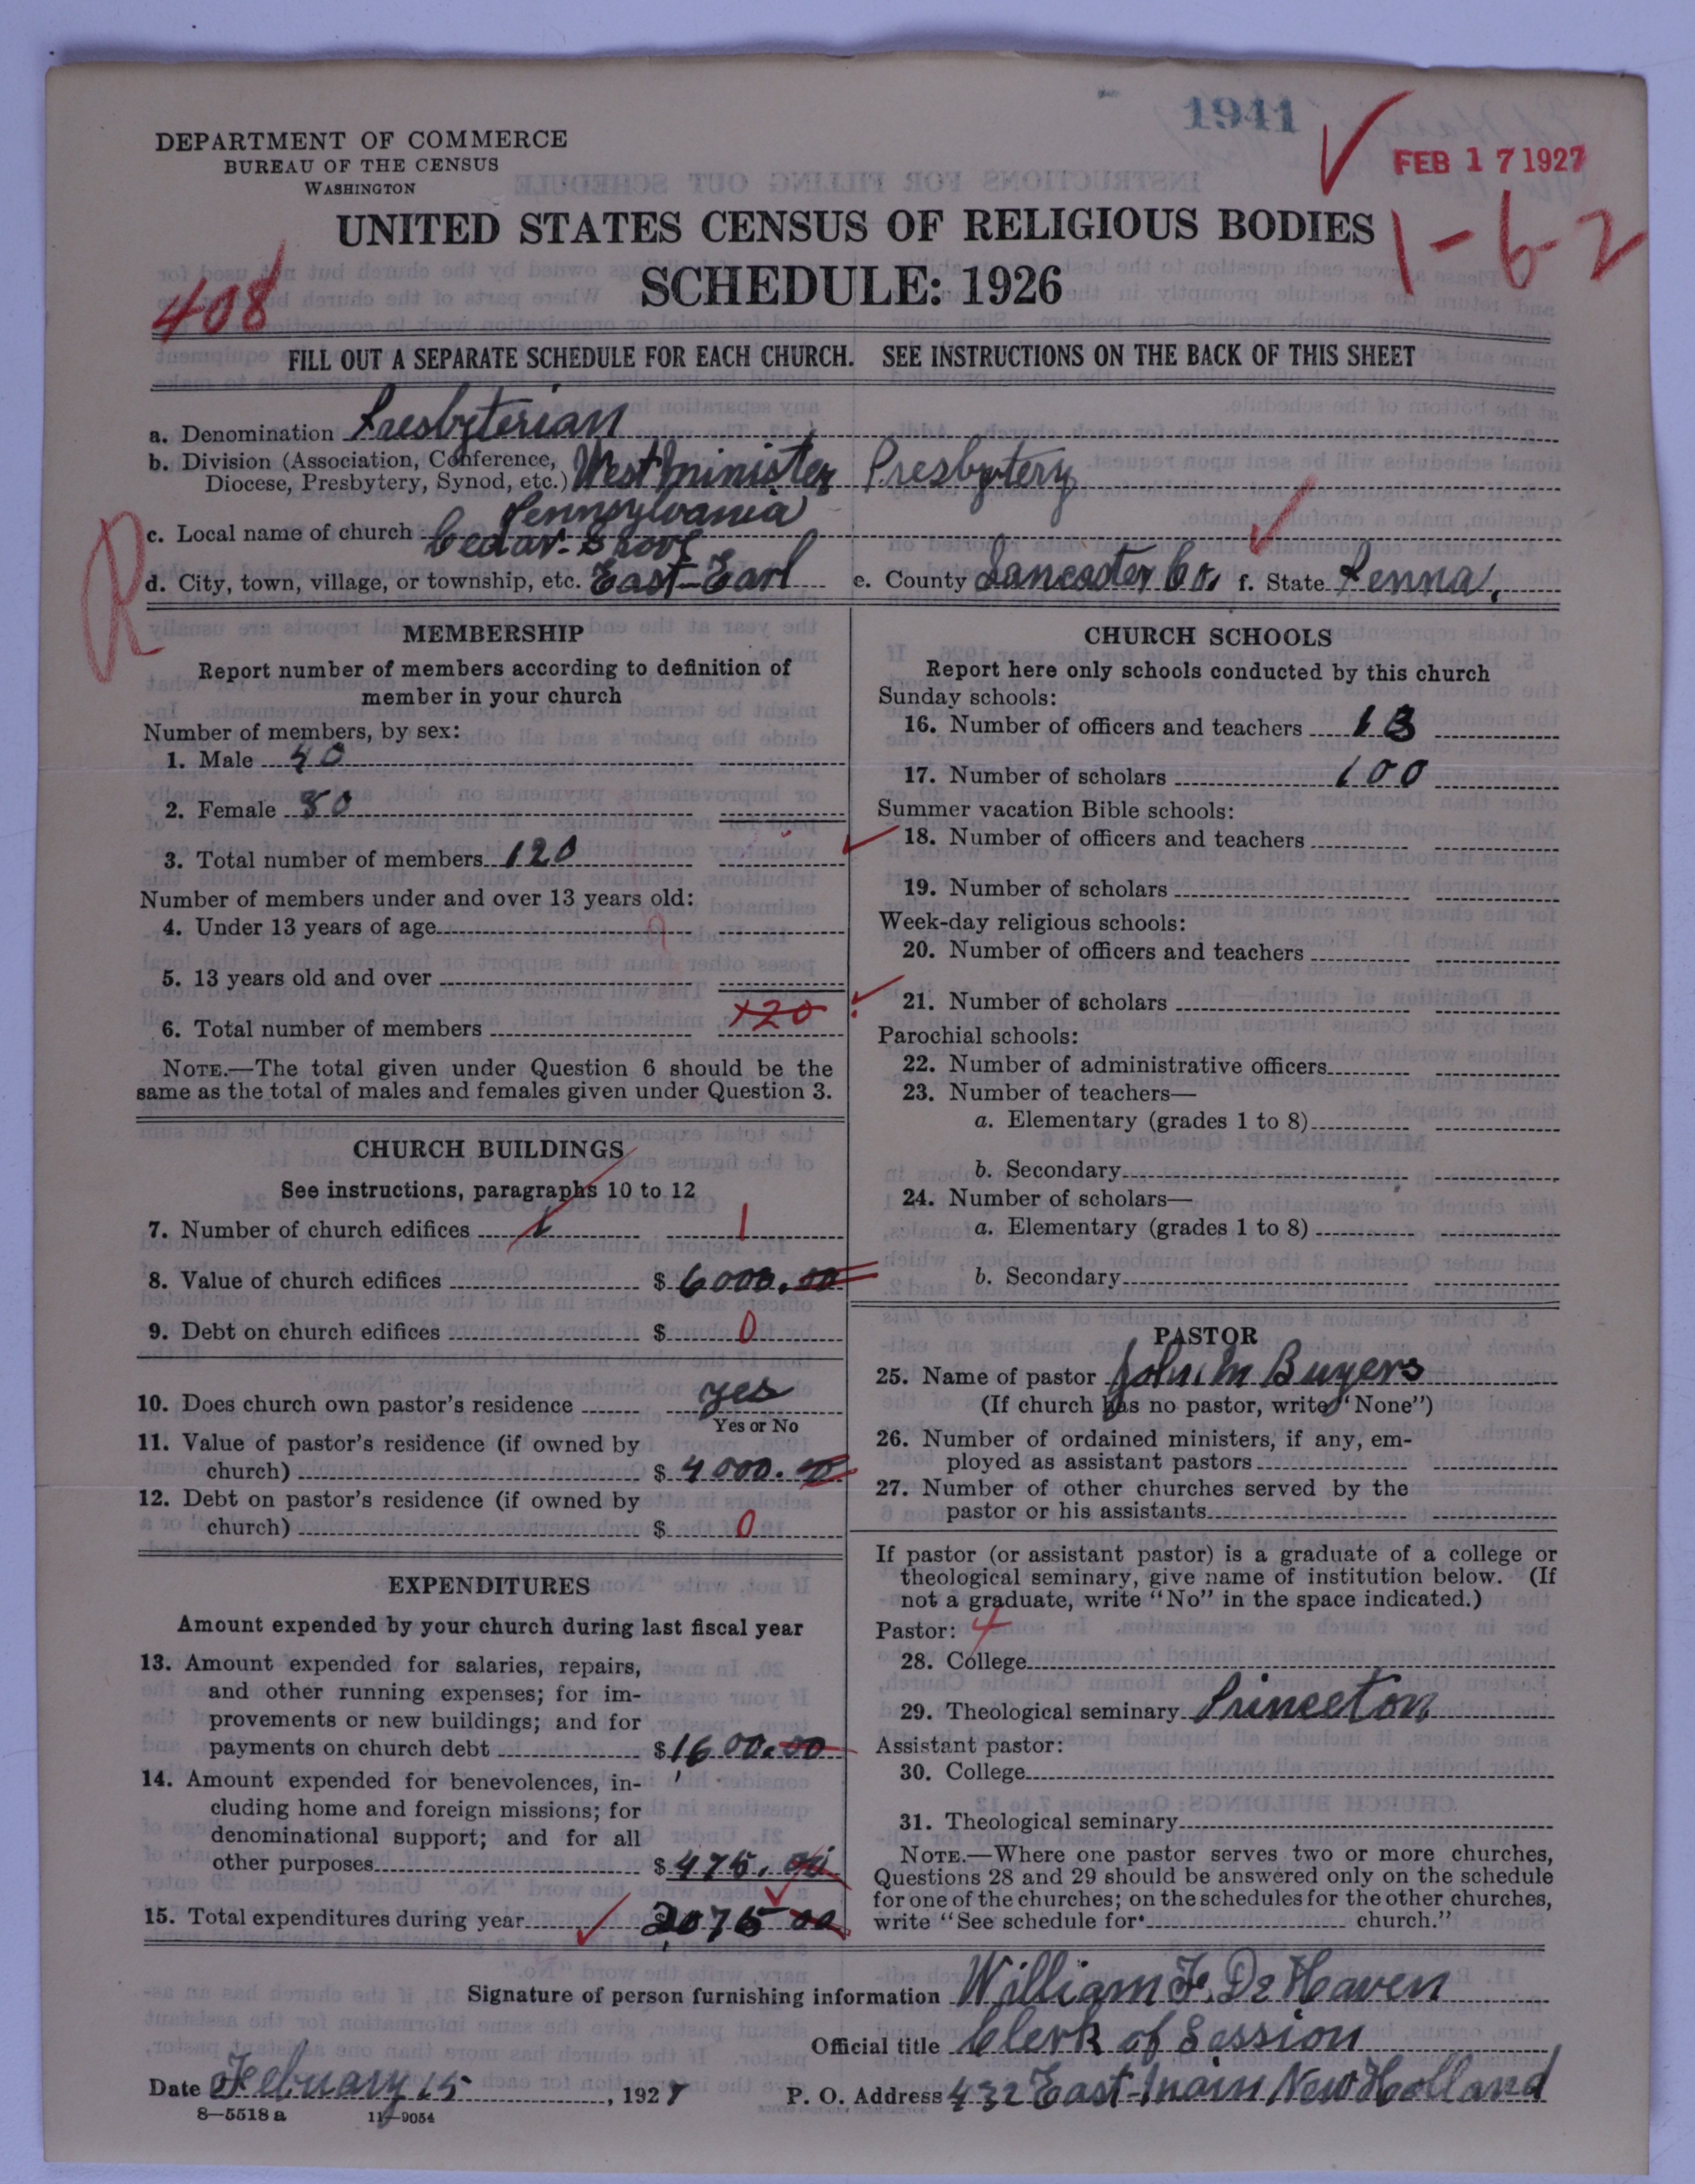 1941
FEB 17 1927
DEPARTMENT OF COMMERCE
BUREAU OF THE CENSUS
WASHINGTON
UNITED STATES CENSUS OF RELIGIOUS BODIES
1-62
SCHEDULE: 1926
408
FILL OUT A SEPARATE SCHEDULE FOR EACH CHURCH. SEE INSTRUCTIONS ON THE BACK OF THIS SHEET
a. Denomination Presbyterian
b. Division (Association, Conference,
Diocese, Presbytery, Synod, etc.) Westminister Presbytery
Pennsylvania
R
c. Local name of church Cedar-Grove
d. City, town, village, or township, etc. East-Earl e. County Lancaster Co. f. State Penna.
MEMBERSHIP
Report number of members according to definition of
member in your church
Number of members, by sex:
1. Male 40
2. Female 80
3. Total number of members 120
Number of members under and over 13 years old:
4. Under 13 years of age
5. 13 years old and over
6. Total number of members 120
NOTE.—The total given under Question 6 should be the
same as the total of males and females given under Question 3.
CHURCH BUILDINGS
See instructions, paragraphs 10 to 12
7. Number of church edifices 1 1
8. Value of church edifices $ 6000.00
9. Debt on church edifices $ 0
10. Does church own pastor's residence yes
Yes or No
11. Value of pastor's residence (if owned by
church) $ 4000.00
12. Debt on pastor's residence (if owned by
church) $ 0
EXPENDITURES
Amount expended by your church during last fiscal year
13. Amount expended for salaries, repairs,
and other running expenses; for im-
provements or new buildings; and for
payments on church debt $ 1600.00
14. Amount expended for benevolences, in-
cluding home and foreign missions; for
denominational support; and for all
other purposes $ 475.00
15. Total expenditures during year $ 2075 00
CHURCH SCHOOLS
Report here only schools conducted by this church
Sunday schools:
16. Number of officers and teachers 13
17. Number of scholars 100
Summer vacation Bible schools:
18. Number of officers and teachers
19. Number of scholars
Week-day religious schools:
20. Number of officers and teachers
21. Number of scholars
Parochial schools:
22. Number of administrative officers
23. Number of teachers—
a. Elementary (grades 1 to 8)
b. Secondary
24. Number of scholars—
a. Elementary (grades 1 to 8)
b. Secondary
PASTOR
25. Name of pastor John M Buyers
(If church has no pastor, write "None")
26. Number of ordained ministers, if any, em-
ployed as assistant pastors
27. Number of other churches served by the
pastor or his assistants
If pastor (or assistant pastor) is a graduate of a college or
theological seminary, give name of institution below. (If
not a graduate, write "No" in the space indicated.)
Pastor: 4
28. College
29. Theological seminary Princeton
Assistant pastor:
30. College
31. Theological seminary
NOTE.—Where one pastor serves two or more churches,
Questions 28 and 29 should be answered only on the schedule
for one of the churches; on the schedules for the other churches,
write "See schedule for church."
Signature of person furnishing information William F. DeHaven
Official title Clerk of Session
Date February 15, 1927 P. O. Address 432 East-Main New Holland
8—5518 a 11—9054